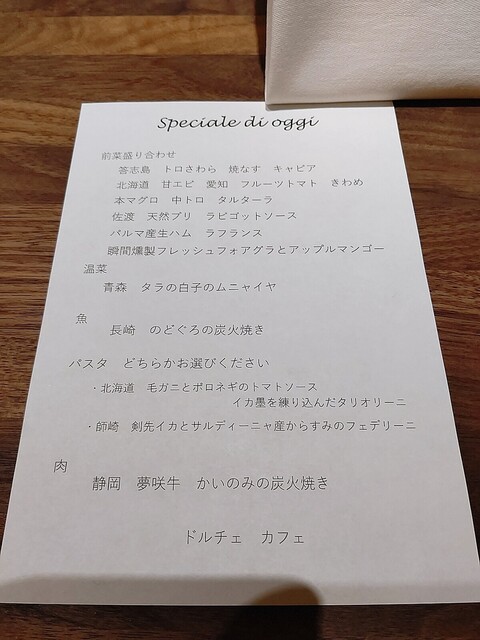 Speciale di oggi
前菜盛り合わせ
答志島　トロさわら　焼なす　キャビア
北海道　甘エビ　愛知　フルーツトマト　きわめ
本マグロ　中トロ　タルターラ
佐渡　天然ブリ　ラビゴットソース
パルマ産生ハム　ラフランス
瞬間燻製フレッシュフォアグラとアップルマンゴー
温菜
青森　タラの白子のムニャイヤ
魚
長崎　のどぐろの炭火焼き
パスタ　どちらかお選びください
・北海道　毛ガニとポロネギのトマトソース
イカ墨を練り込んだタリオリーニ
・師崎　剣先イカとサルディーニャ産からすみのフェデリーニ
肉
静岡　夢咲牛　かいのみの炭火焼き
ドルチェ　カフェ